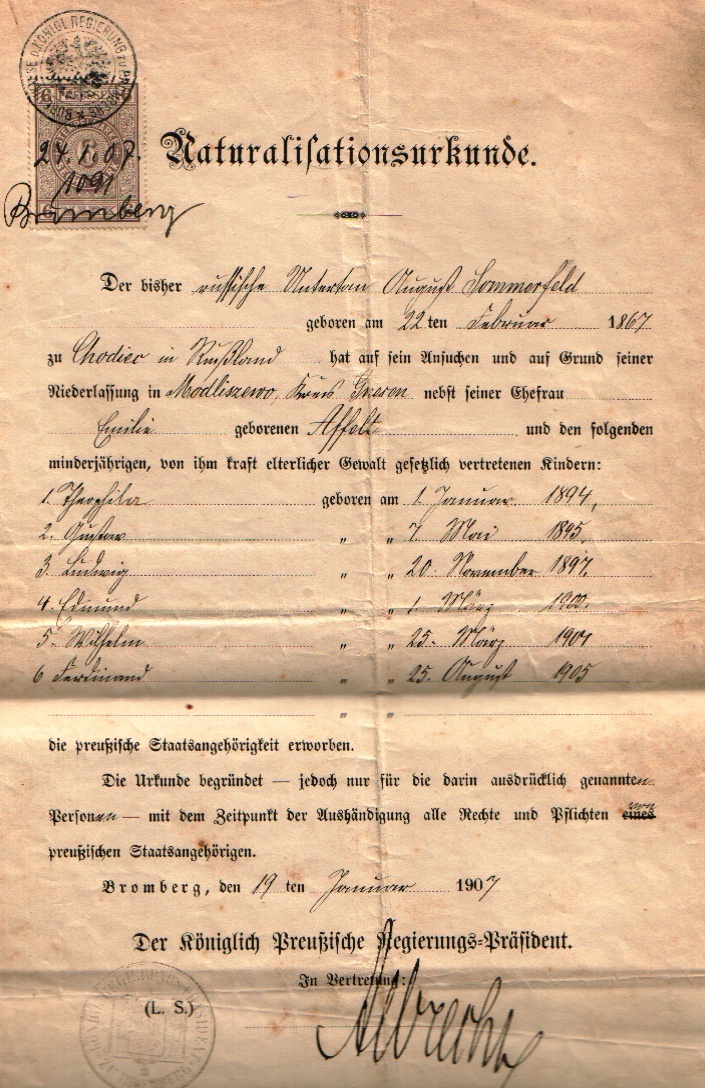 D. KÖNIGL. REGIERUNG ZU
6 6
24.1.07.
1091
Bromberg
Naturaliſationsurkunde.
Der bisher russische Untertan August Sommerfeld
geboren am 22 ten Februar 1867
zu Chodiec in Rußland hat auf sein Ansuchen und auf Grund seiner
Niederlassung in Modliszewo, Kreis Gnesen nebst seiner Ehefrau
Emilie geborenen Affelt und den folgenden
minderjährigen, von ihm kraft elterlicher Gewalt gesetzlich vertretenen Kindern:
1. Theophila geboren am 1. Januar 1894,
2. Gustav „ „ 7 Mai 1895,
3. Ludwig „ „ 20. November 1897,
4. Edmund „ „ 1. März 1900,
5. Wilhelm „ „ 25. März 1901
6 Ferdinand „ „ 25. August 1905
„ „
die preußische Staatsangehörigkeit erworben.
Die Urkunde begründet — jedoch nur für die darin ausdrücklich genannten
Personen — mit dem Zeitpunkt der Aushändigung alle Rechte und Pflichten eines von
preußischen Staatsangehörigen.
Bromberg, den 19 ten Januar 1907
Der Königlich Preußische Regierungs-Präsident.
In Vertretung:
(L. S.)
Albrecht